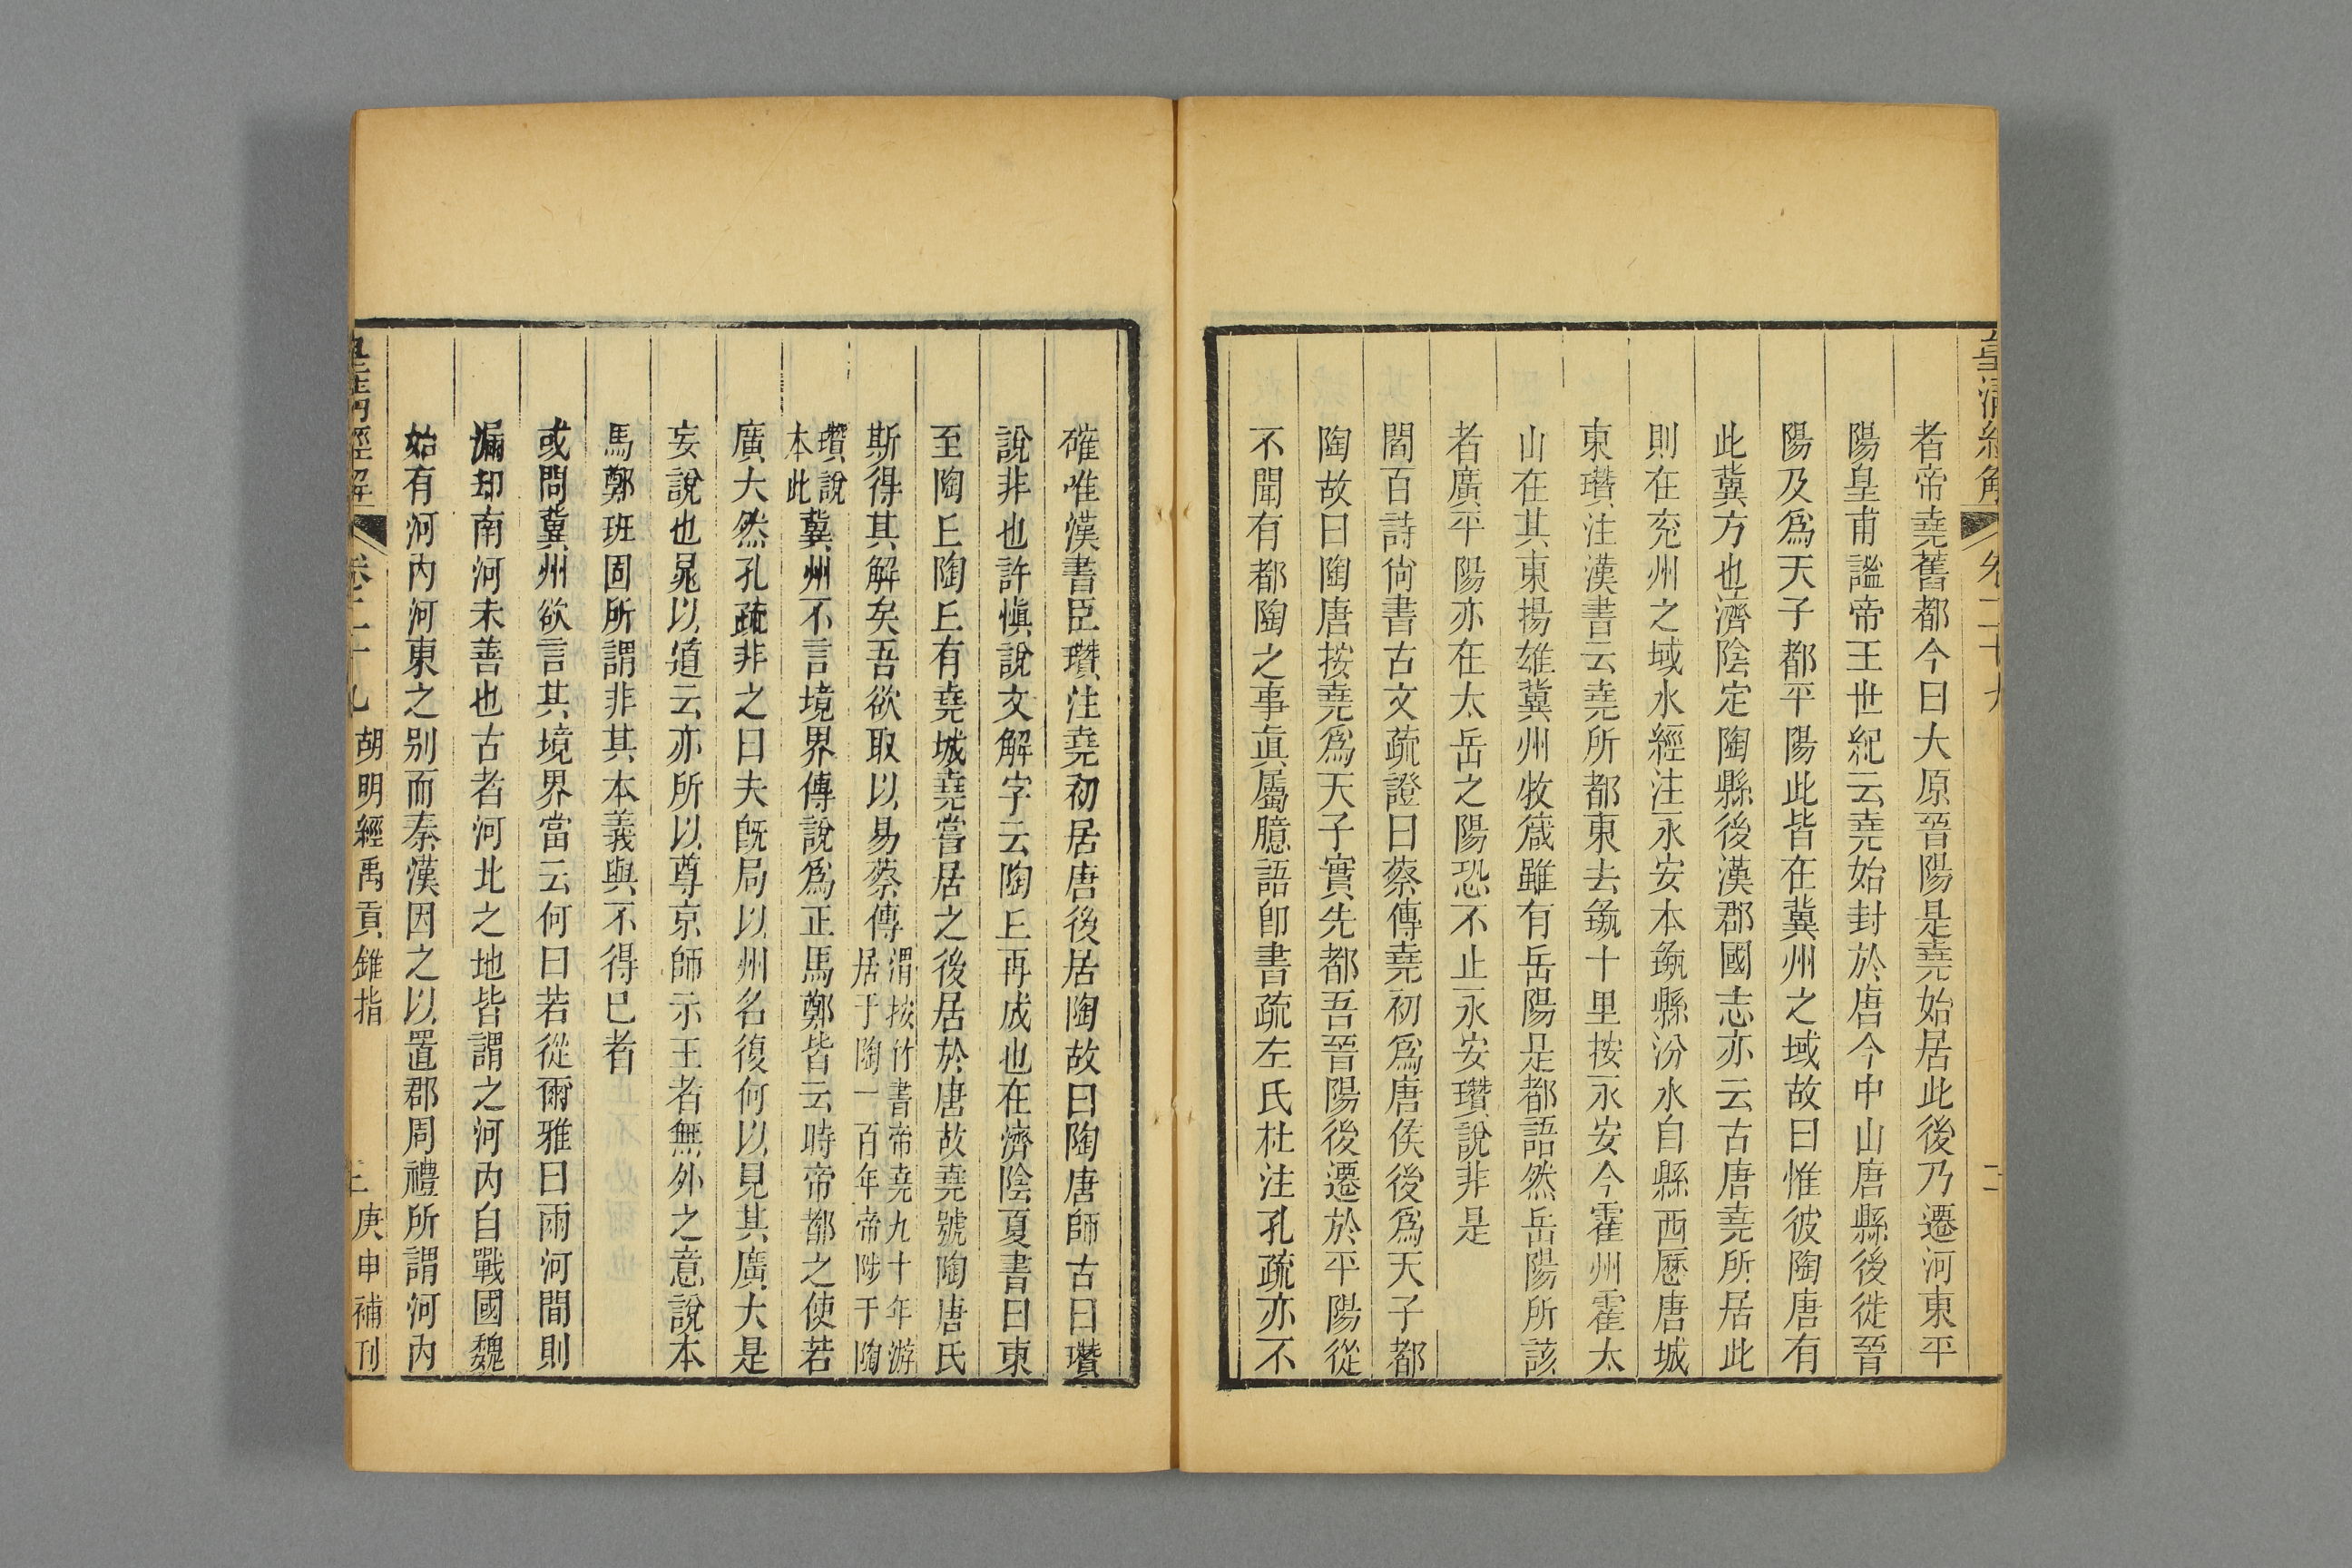 皇清經解
卷二十九
者帝堯舊都今曰大原晉陽是堯始居此後乃遷河東平
陽皇甫謐帝王世紀云堯始封於唐今中山唐縣後徙晉
陽及爲天子都平陽此皆在冀州之域故曰惟彼陶唐有
此冀方也濟陰定陶縣後漢郡國志亦云古唐堯所居此
則在兖州之域水經注永安本彘縣汾水自縣西歷唐城
東瓚注漢書云堯所都東去彘十里按永安今霍州霍太
山在其東揚雄冀州牧箴雖有岳陽是都語然岳陽所該
者廣平陽亦在太岳之陽恐不止永安瓚說非是
閻百詩尚書古文疏證曰蔡傳堯初爲唐侯後爲天子都
陶故曰陶唐按堯爲天子實先都吾晉陽後遷於平陽從
不聞有都陶之事眞屬臆語卽書疏左氏杜注孔疏亦不
確唯漢書臣瓚注堯初居唐後居陶故曰陶唐師古曰瓚
說非也許愼說文解字云陶丘再成也在濟陰夏書曰東
至陶丘陶丘有堯城堯嘗居之後居於唐故堯號陶唐氏
斯得其解矣吾欲取以易蔡傳渭按竹書帝堯九十年游
居于陶一百年帝陟于陶
瓚說
本此冀州不言境界傳說爲正馬鄭皆云時帝都之使若
廣大然孔疏非之曰夫旣局以州名復何以見其廣大是
妄說也晁以道云亦所以尊京師示王者無外之意說本
馬鄭班固所謂非其本義與不得已者
或問冀州欲言其境界當云何曰若從爾雅曰兩河間則
漏却南河未善也古者河北之地皆謂之河內自戰國魏
始有河內河東之别而秦漢因之以置郡周禮所謂河內
皇清經解
卷二十九
胡明經禹貢錐指
庚申補刊